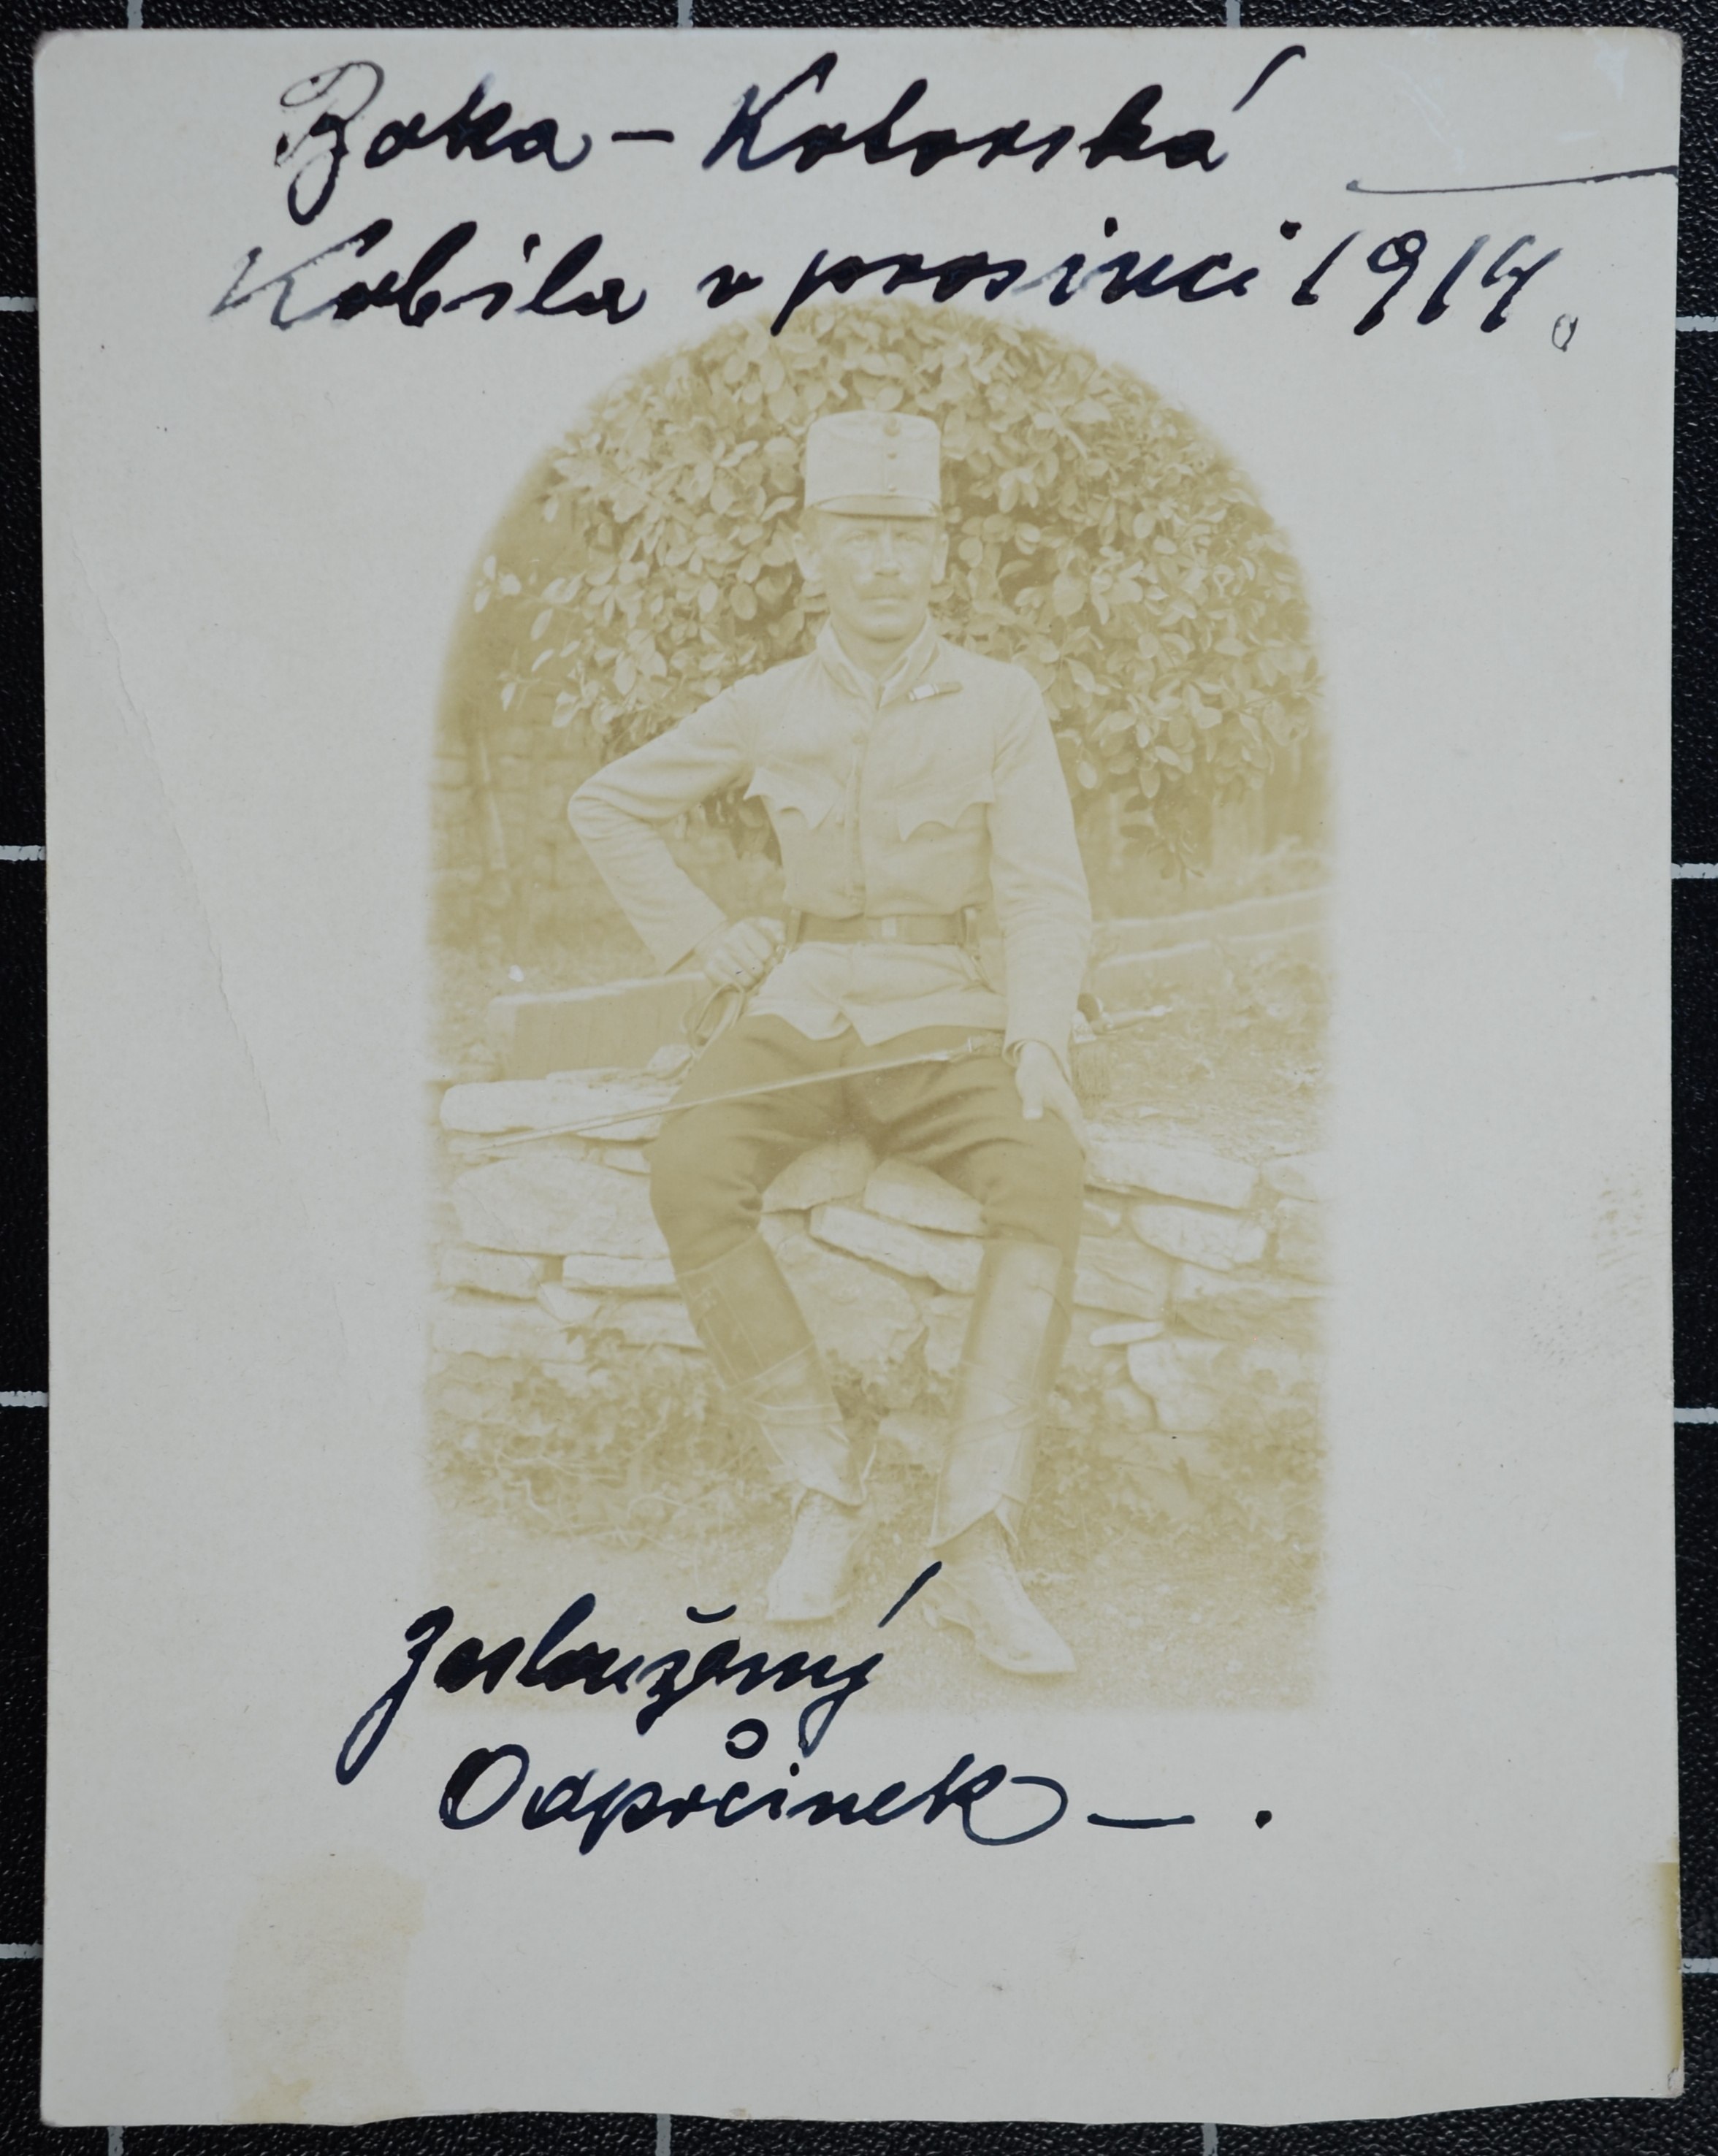 Boka - Kotorská
Kobila v prosinci 1914.
Zasloužený
Odpočinek - .